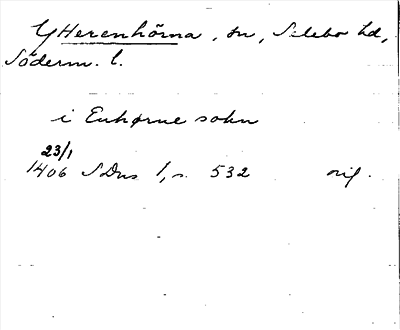 Ytterenhörna, sn, Selebo hd,
Söderm. l.
i Enhørne sokn
23/1
1406 SDns 1, s. 532 orig.